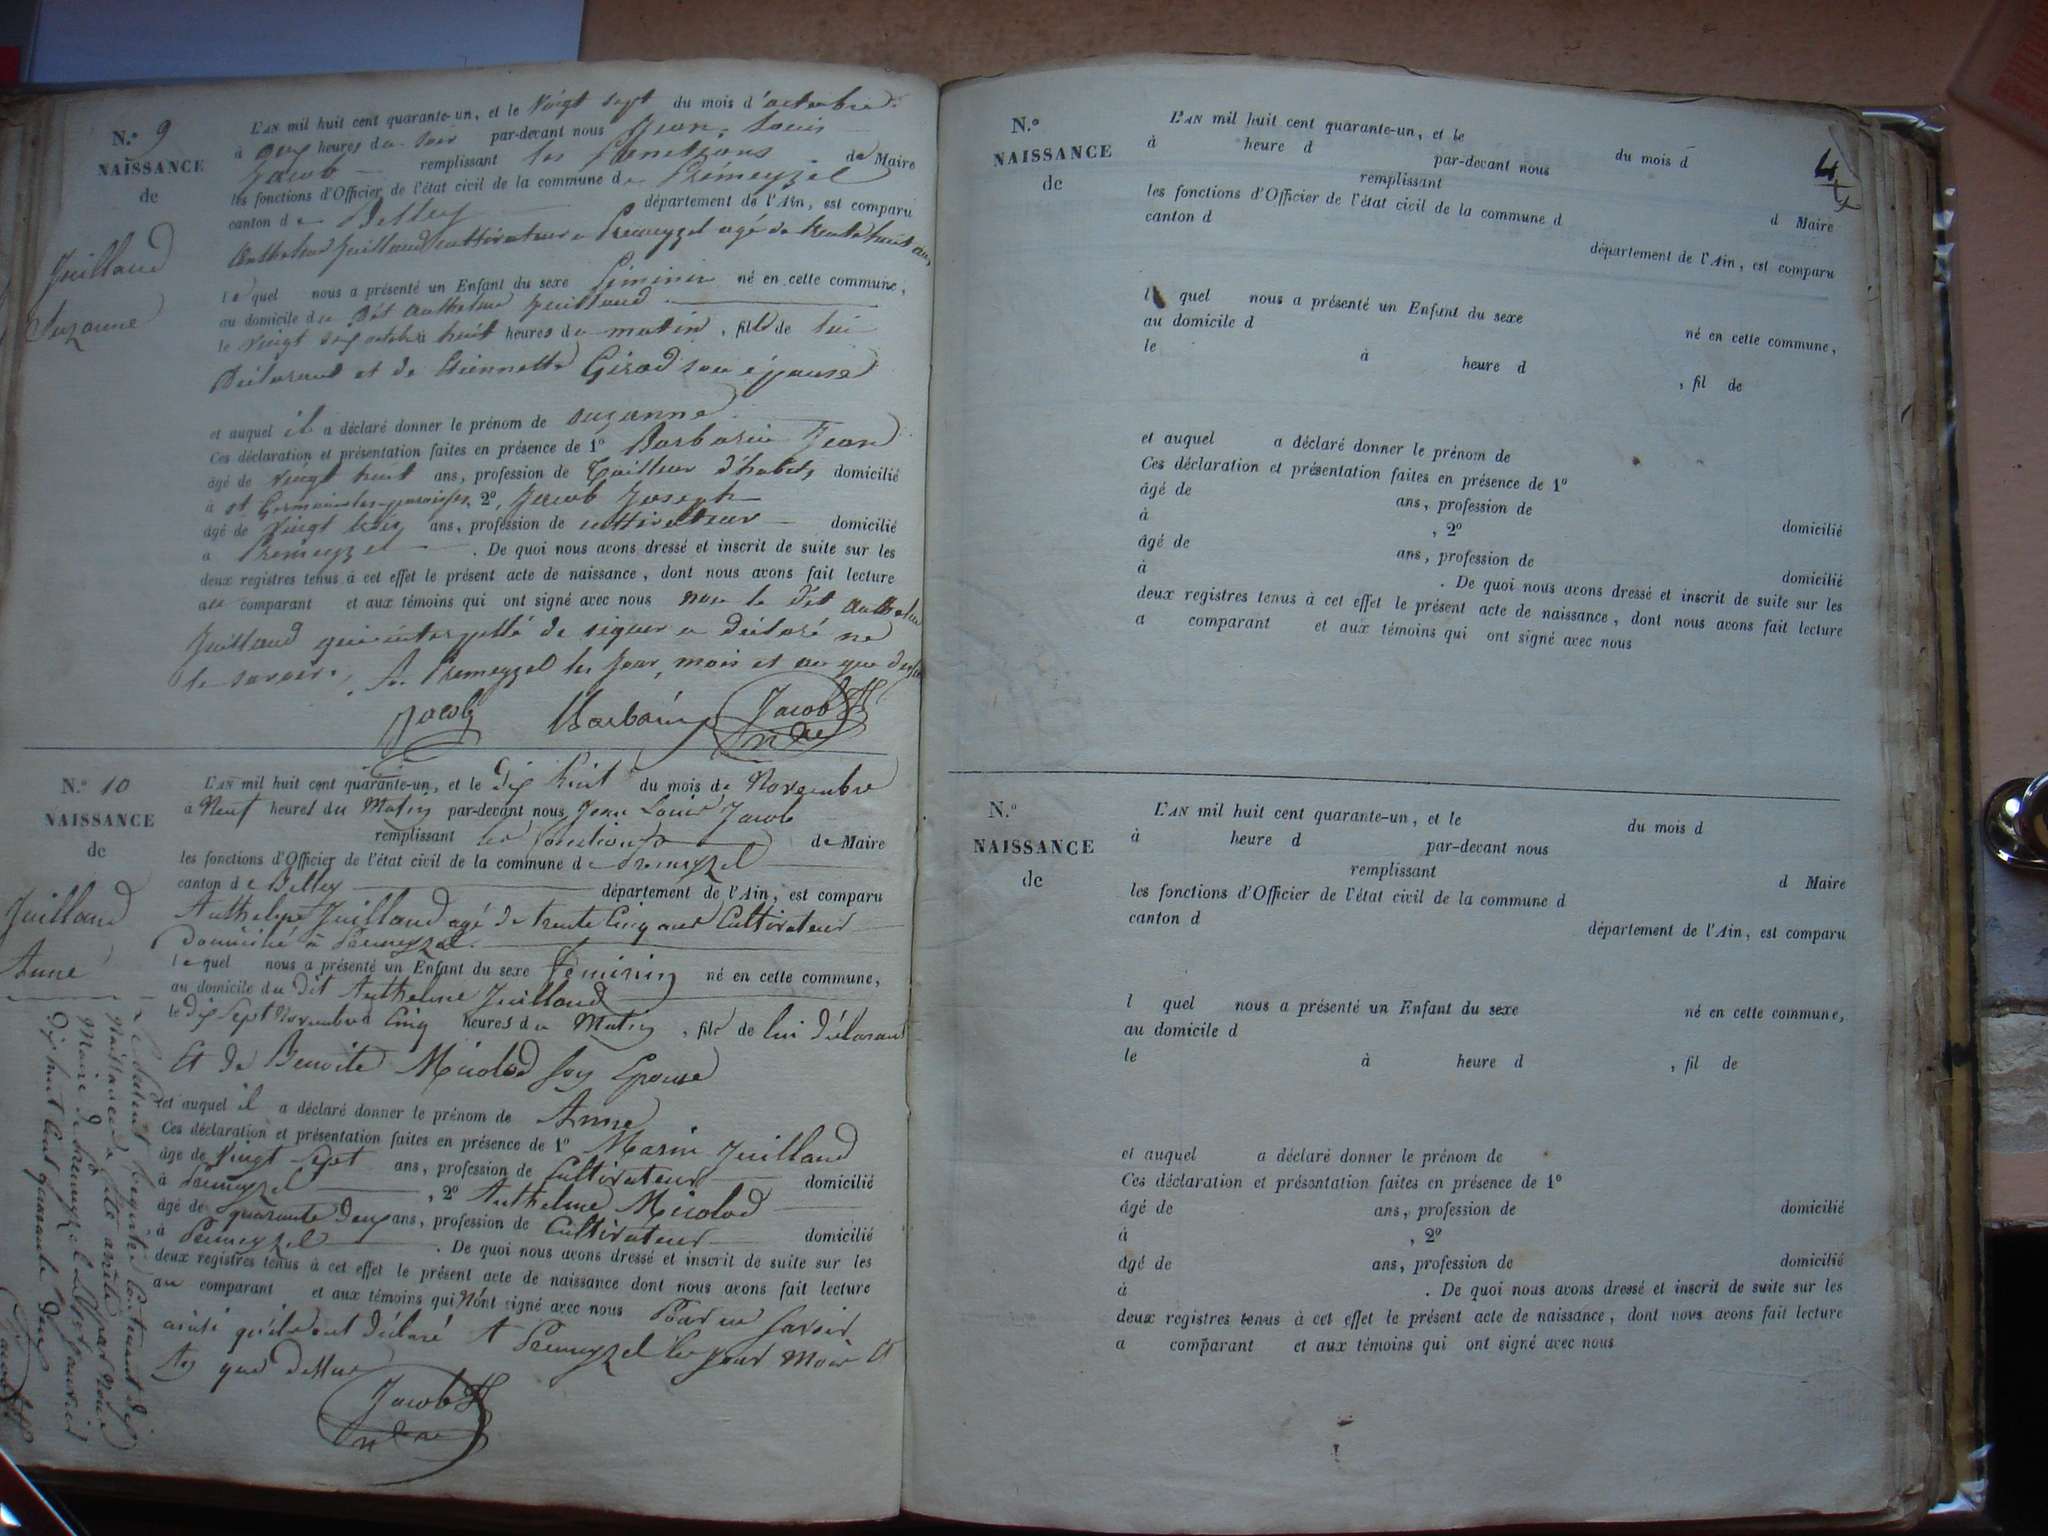 N.° 9
NAISSANCE
de
Juilland
Suzanne
L'AN mil huit cent quarante-un, et le Vingt sept du mois d'octobre
à heures du soir par-devant nous Jean, Louis
Jacob remplissant les fonctions de Maire
les fonctions d'Officier de l'état civil de la commune de Prémeyzel
canton de Belley département de l'Ain, est comparu
Anthelme Juilland cultivateur a Premeyzel agé de trente huit ans,
le quel nous a présenté un Enfant du sexe féminin né en cette commune,
au domicile du dit Anthelme Juilland
le Vingt six octobre à huit heures du matin, fille de lui
Déclarant et de Etiennette Girod son épouse
et auquel il a déclaré donner le prénom de suzanne
Ces déclaration et présentation faites en présence de 1° Barbarin Jean
âgé de Vingt huit ans, profession de Tailleur d'habits domicilié
à st Germain les paroisses, 2°, Jacob Joseph
âgé de Vingt trois ans, profession de cultivateur domicilié
à Prémeyzel. De quoi nous avons dressé et inscrit de suite sur les
deux registres tenus à cet effet le présent acte de naissance, dont nous avons fait lecture
au comparant et aux témoins qui ont signé avec nous non le dit Anthelme
Juilland qui interpellé de signer a déclaré ne
le savoir. A Premeyzel les jour, mois et an que dessus
Jacob Barbarin Jacob
N.° 10
NAISSANCE
de
Juilland
Anne
L'AN mil huit cent quarante-un, et le Dix huit du mois de Novembre
à Neuf heures du Matin par-devant nous Jean Louis Jacob
remplissant les fonctions de Maire
les fonctions d'Officier de l'état civil de la commune de Premeyzel
canton de Belley département de l'Ain, est comparu
Anthelme Juilland agé de trente Cinq ans Cultivateur
domicilié à Premeyzel
le quel nous a présenté un Enfant du sexe féminin né en cette commune,
au domicile du dit Anthelme Juilland
le dix sept Novembre à Cinq heures du Matin, fille de lui déclarant
Et de Benoite Micolod son Epouse
et auquel il a déclaré donner le prénom de Anne
Ces déclaration et présentation faites en présence de 1° Marin Juilland
âgé de Vingt Sept ans, profession de Cultivateur domicilié
à Premeyzel, 2° Anthelme Micolod
âgé de quarante Deux ans, profession de Cultivateur domicilié
à Premeyzel. De quoi nous avons dressé et inscrit de suite sur les
deux registres tenus à cet effet le présent acte de naissance dont nous avons fait lecture
au comparant et aux témoins qui N'ont signé avec nous Pour ne savoir
ainsi qu'ils ont déclaré A Premeyzel les jour Mois Et
An que dessus
Jacob
Le présent registre Contenant dix
Naissances a été arrêté par nous
Maire de Premeyzel le janvier
Dix huit Cent quarante deux
Jacob
4
N.°
NAISSANCE
de
L'AN mil huit cent quarante-un, et le du mois d
à heure d par-devant nous
remplissant d Maire
les fonctions d'Officier de l'état civil de la commune d
canton d département de l'Ain, est comparu
l quel nous a présenté un Enfant du sexe né en cette commune,
au domicile d
le à heure d , fil de
et auquel a déclaré donner le prénom de
Ces déclaration et présentation faites en présence de 1°
âgé de ans, profession de domicilié
à , 2°
âgé de ans, profession de domicilié
à . De quoi nous avons dressé et inscrit de suite sur les
deux registres tenus à cet effet le présent acte de naissance, dont nous avons fait lecture
a comparant et aux témoins qui ont signé avec nous
N.°
NAISSANCE
de
L'AN mil huit cent quarante-un, et le du mois d
à heure d par-devant nous
remplissant d Maire
les fonctions d'Officier de l'état civil de la commune d
canton d département de l'Ain, est comparu
l quel nous a présenté un Enfant du sexe né en cette commune,
au domicile d
le à heure d , fil de
et auquel a déclaré donner le prénom de
Ces déclaration et présentation faites en présence de 1°
âgé de ans, profession de domicilié
à , 2°
âgé de ans, profession de domicilié
à . De quoi nous avons dressé et inscrit de suite sur les
deux registres tenus à cet effet le présent acte de naissance, dont nous avons fait lecture
a comparant et aux témoins qui ont signé avec nous